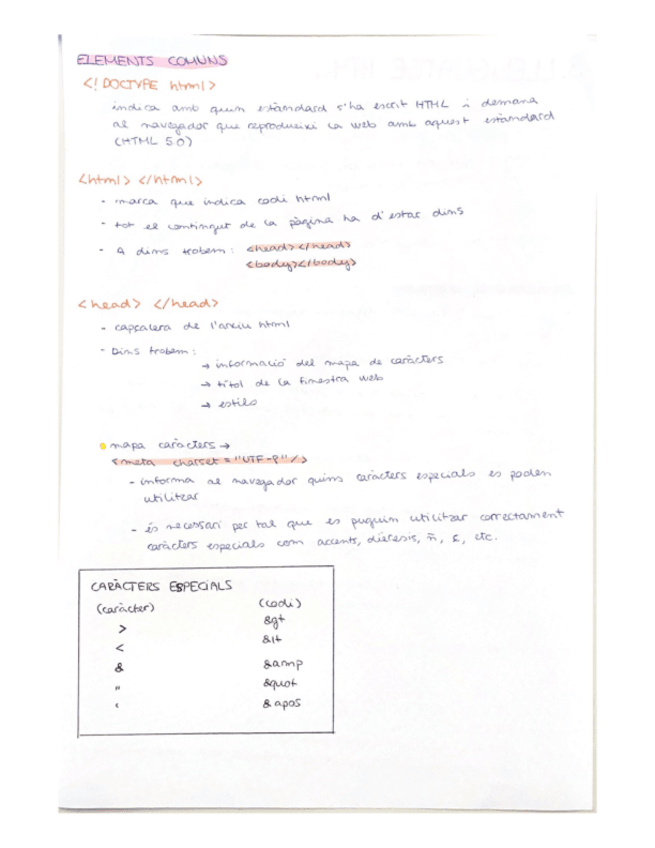 ELEMENTS COMUNS
<! DOCTYPE html>
indica amb quin estàndard s'ha escrit HTML i demana
al navegador que reprodueixi la web amb aquest estàndard
(HTML 5.0)
<html> </html>
- marca que indica codi html
- tot el contingut de la pàgina ha d'estar dins
- A dins trobem: <head></head>
<body></body>
<head> </head>
- capçalera de l'arxiu html
- Dins trobem:
→ informació del mapa de caràcters
→ títol de la finestra web
→ estils
mapa caràcters →
<meta charset = "UTF-8"/>
- informa al navegador quins caràcters especials es poden
utilitzar
- és necessari per tal que es puguin utilitzar correctament
caràcters especials com accents, dièresis, ñ, ç, etc.
CARÀCTERS ESPECIALS
(caràcter) (codi)
> &gt
< &lt
& &amp
" &quot
' &apos